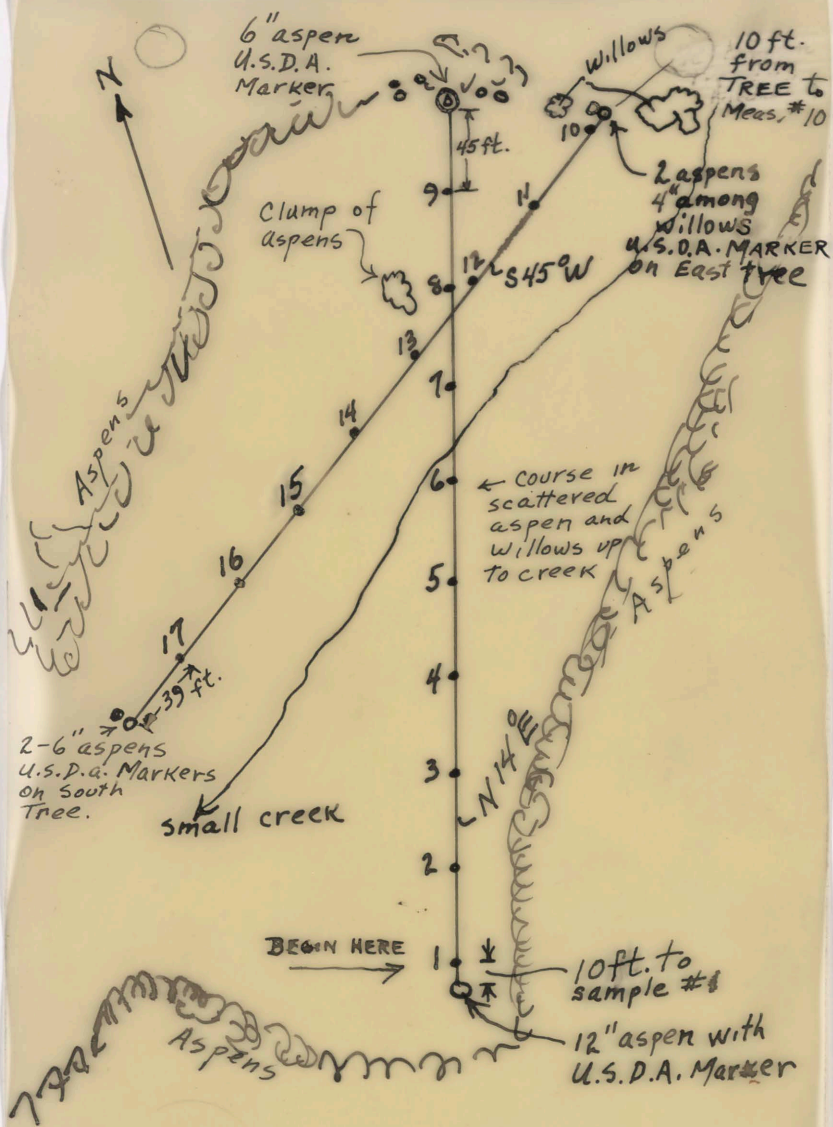 N
6" aspen
U.S.D.A.
Marker
Willows
10 ft.
from
TREE to
Meas. #10
45 ft.
10
9
11
2 aspens
4" among
willows
U.S.D.A. MARKER
on East tree
Clump of
aspens
12
S45°W
8
13
7
Aspens
14
6
← Course in
scattered
aspen and
willows up
to creek
15
16
5
Aspens
17
39 ft.
4
2-6" aspens
U.S.D.a. Markers
on South
Tree.
3
N 14°E
small creek
2
BEGIN HERE
1
10 ft. to
sample #1
12" aspen with
U.S.D.A. Marker
Aspens